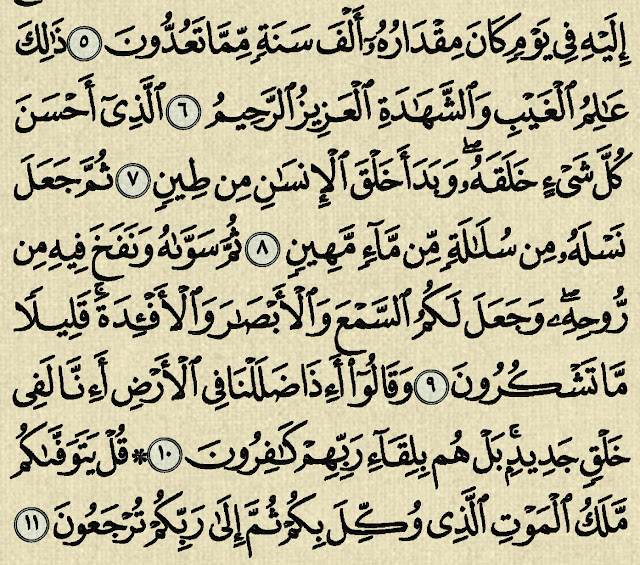 إِلَيْهِ فِي يَوْمٍ كَانَ مِقْدَارُهُۥٓ أَلْفَ سَنَةٍ مِّمَّا تَعُدُّونَ ٥ ذَٰلِكَ
عَٰلِمُ ٱلْغَيْبِ وَٱلشَّهَٰدَةِ ٱلْعَزِيزُ ٱلرَّحِيمُ ٦ ٱلَّذِىٓ أَحْسَنَ
كُلَّ شَىْءٍ خَلَقَهُۥۖ وَبَدَأَ خَلْقَ ٱلْإِنسَٰنِ مِن طِينٍ ٧ ثُمَّ جَعَلَ
نَسْلَهُۥ مِن سُلَٰلَةٍ مِّن مَّآءٍ مَّهِينٍ ٨ ثُمَّ سَوَّىٰهُ وَنَفَخَ فِيهِ مِن
رُّوحِهِۦۖ وَجَعَلَ لَكُمُ ٱلسَّمْعَ وَٱلْأَبْصَٰرَ وَٱلْأَفْـِٔدَةَۚ قَلِيلًا
مَّا تَشْكُرُونَ ٩ وَقَالُوٓا۟ أَءِذَا ضَلَلْنَا فِى ٱلْأَرْضِ أَءِنَّا لَفِى
خَلْقٍ جَدِيدٍۭۚ بَلْ هُم بِلِقَآءِ رَبِّهِمْ كَٰفِرُونَ ١٠ * قُلْ يَتَوَفَّىٰكُم
مَّلَكُ ٱلْمَوْتِ ٱلَّذِى وُكِّلَ بِكُمْ ثُمَّ إِلَىٰ رَبِّكُمْ تُرْجَعُونَ ١١